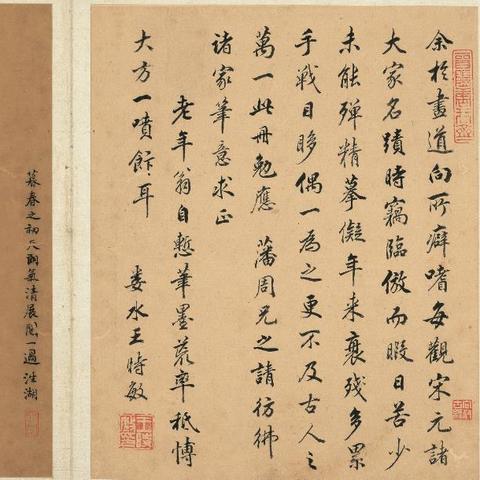 余於畫道向所癖嗜每觀宋元諸
大家名蹟時竊臨倣而暇日苦少
未能殫精摹儗年來衰殘多累
手戰目眵偶一為之更不及古人之
萬一此冊勉應 藩周兄之請彷彿
諸家筆意求正
老年翁自慙筆墨荒率秪愽
大方一噴飰耳 婁水王時敏
暮春之初天朗氣清展閱一過